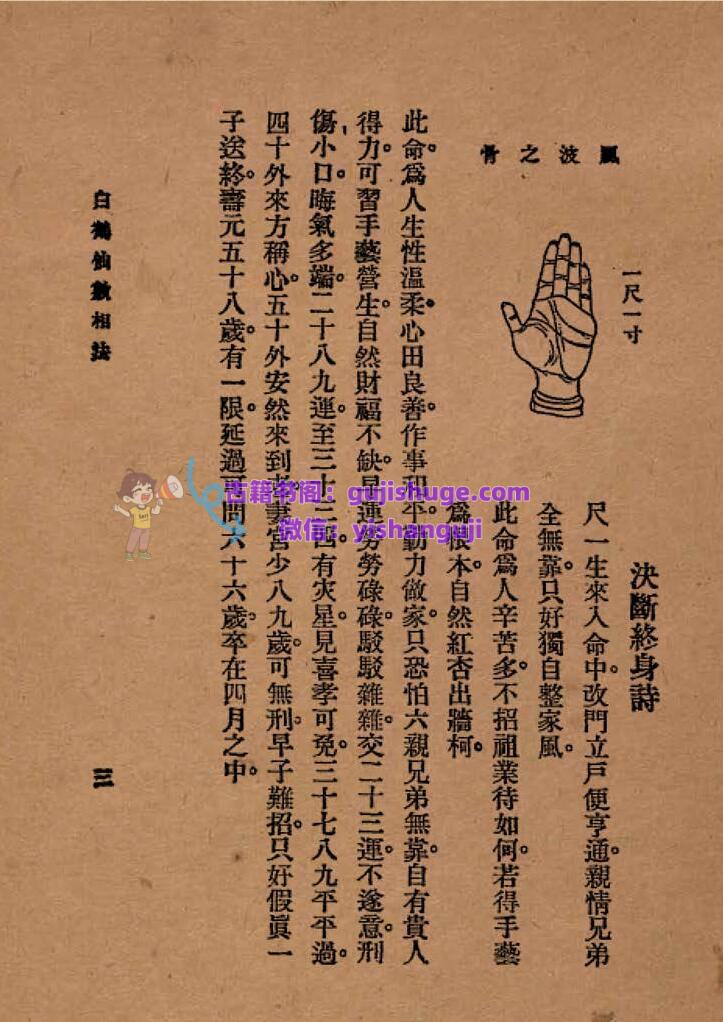 風波之骨
一尺一寸
決斷終身詩
尺一生來入命中。改門立戶便亨通。親情兄弟
全無靠。只好獨自整家風。
此命爲人辛苦多。不招祖業待如何。若得手藝
爲根本。自然紅杏出牆柯。
此命。爲人生性溫柔。心田良善。作事和平。勤力做家。只恐怕六親兄弟無靠。自有貴人
得力。可習手藝營生。自然財福不缺。早運勞勞碌碌。駁駁雜雜。交二十三運。不遂意。刑
傷小口。晦氣多端。二十八九運。至三十三四。有灾星。見喜孝可免。三十七八九平平過。
四十外來方稱心。五十外安然來到老。妻宮少八九歲。可無刑。早子難招。只好假眞一
子送終。壽元五十八歲。有一限。延過可問六十六歲。卒在四月之中。
白鶴仙數相法
三
古籍书阁：gujishuge.com
微信：yishanguji